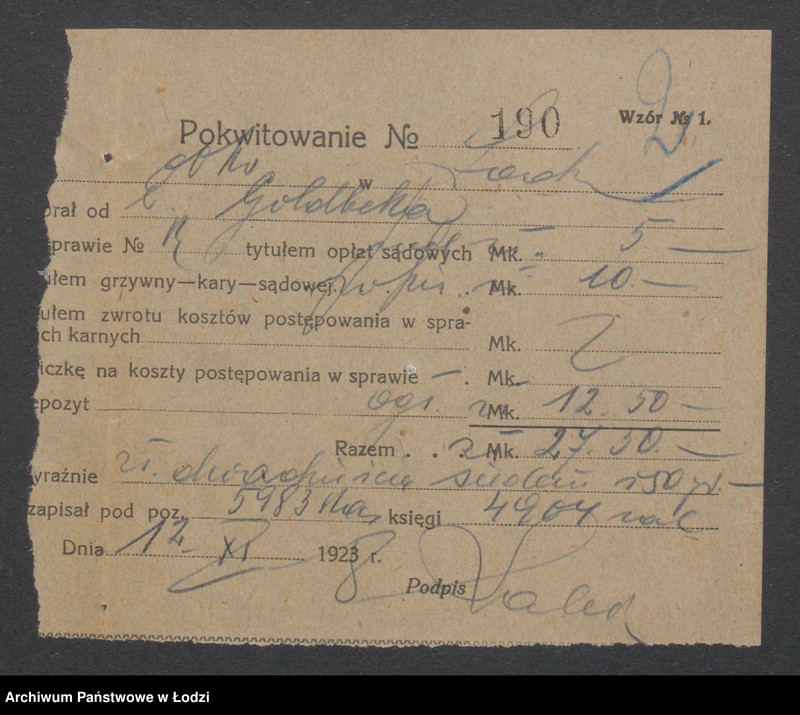 Wzór № 1.
2
Pokwitowanie № 190
w
brał od Goldberga
sprawie № tytułem opłat sądowych Mk. 5 —
ułem grzywny—kary—sądowej. Mk. 10.—
ułem zwrotu kosztów postępowania w spra-
ch karnych Mk.
iczkę na koszty postępowania w sprawie — . Mk. —
epozyt ogł. Mk. 12.50—
Razem . . Mk. 27.50.—
yraźnie zł. dwadzieścia siedem i 50 gr.—
zapisał pod poz. 5983 księgi 4904
Dnia 12 XI 1923 8 r.
Podpis
Archiwum Państwowe w Łodzi